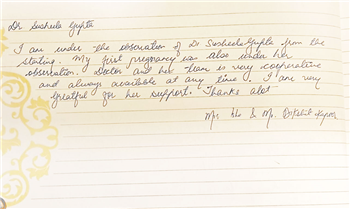 Dr Susheela Gupta
I am under the observation of Dr Susheela Gupta from the
starting. My first pregnancy was also under her
observation. Doctor and her team is very cooperative
and always available at any time. I am very
greatful for her support. Thanks alot
Mrs & Mr.